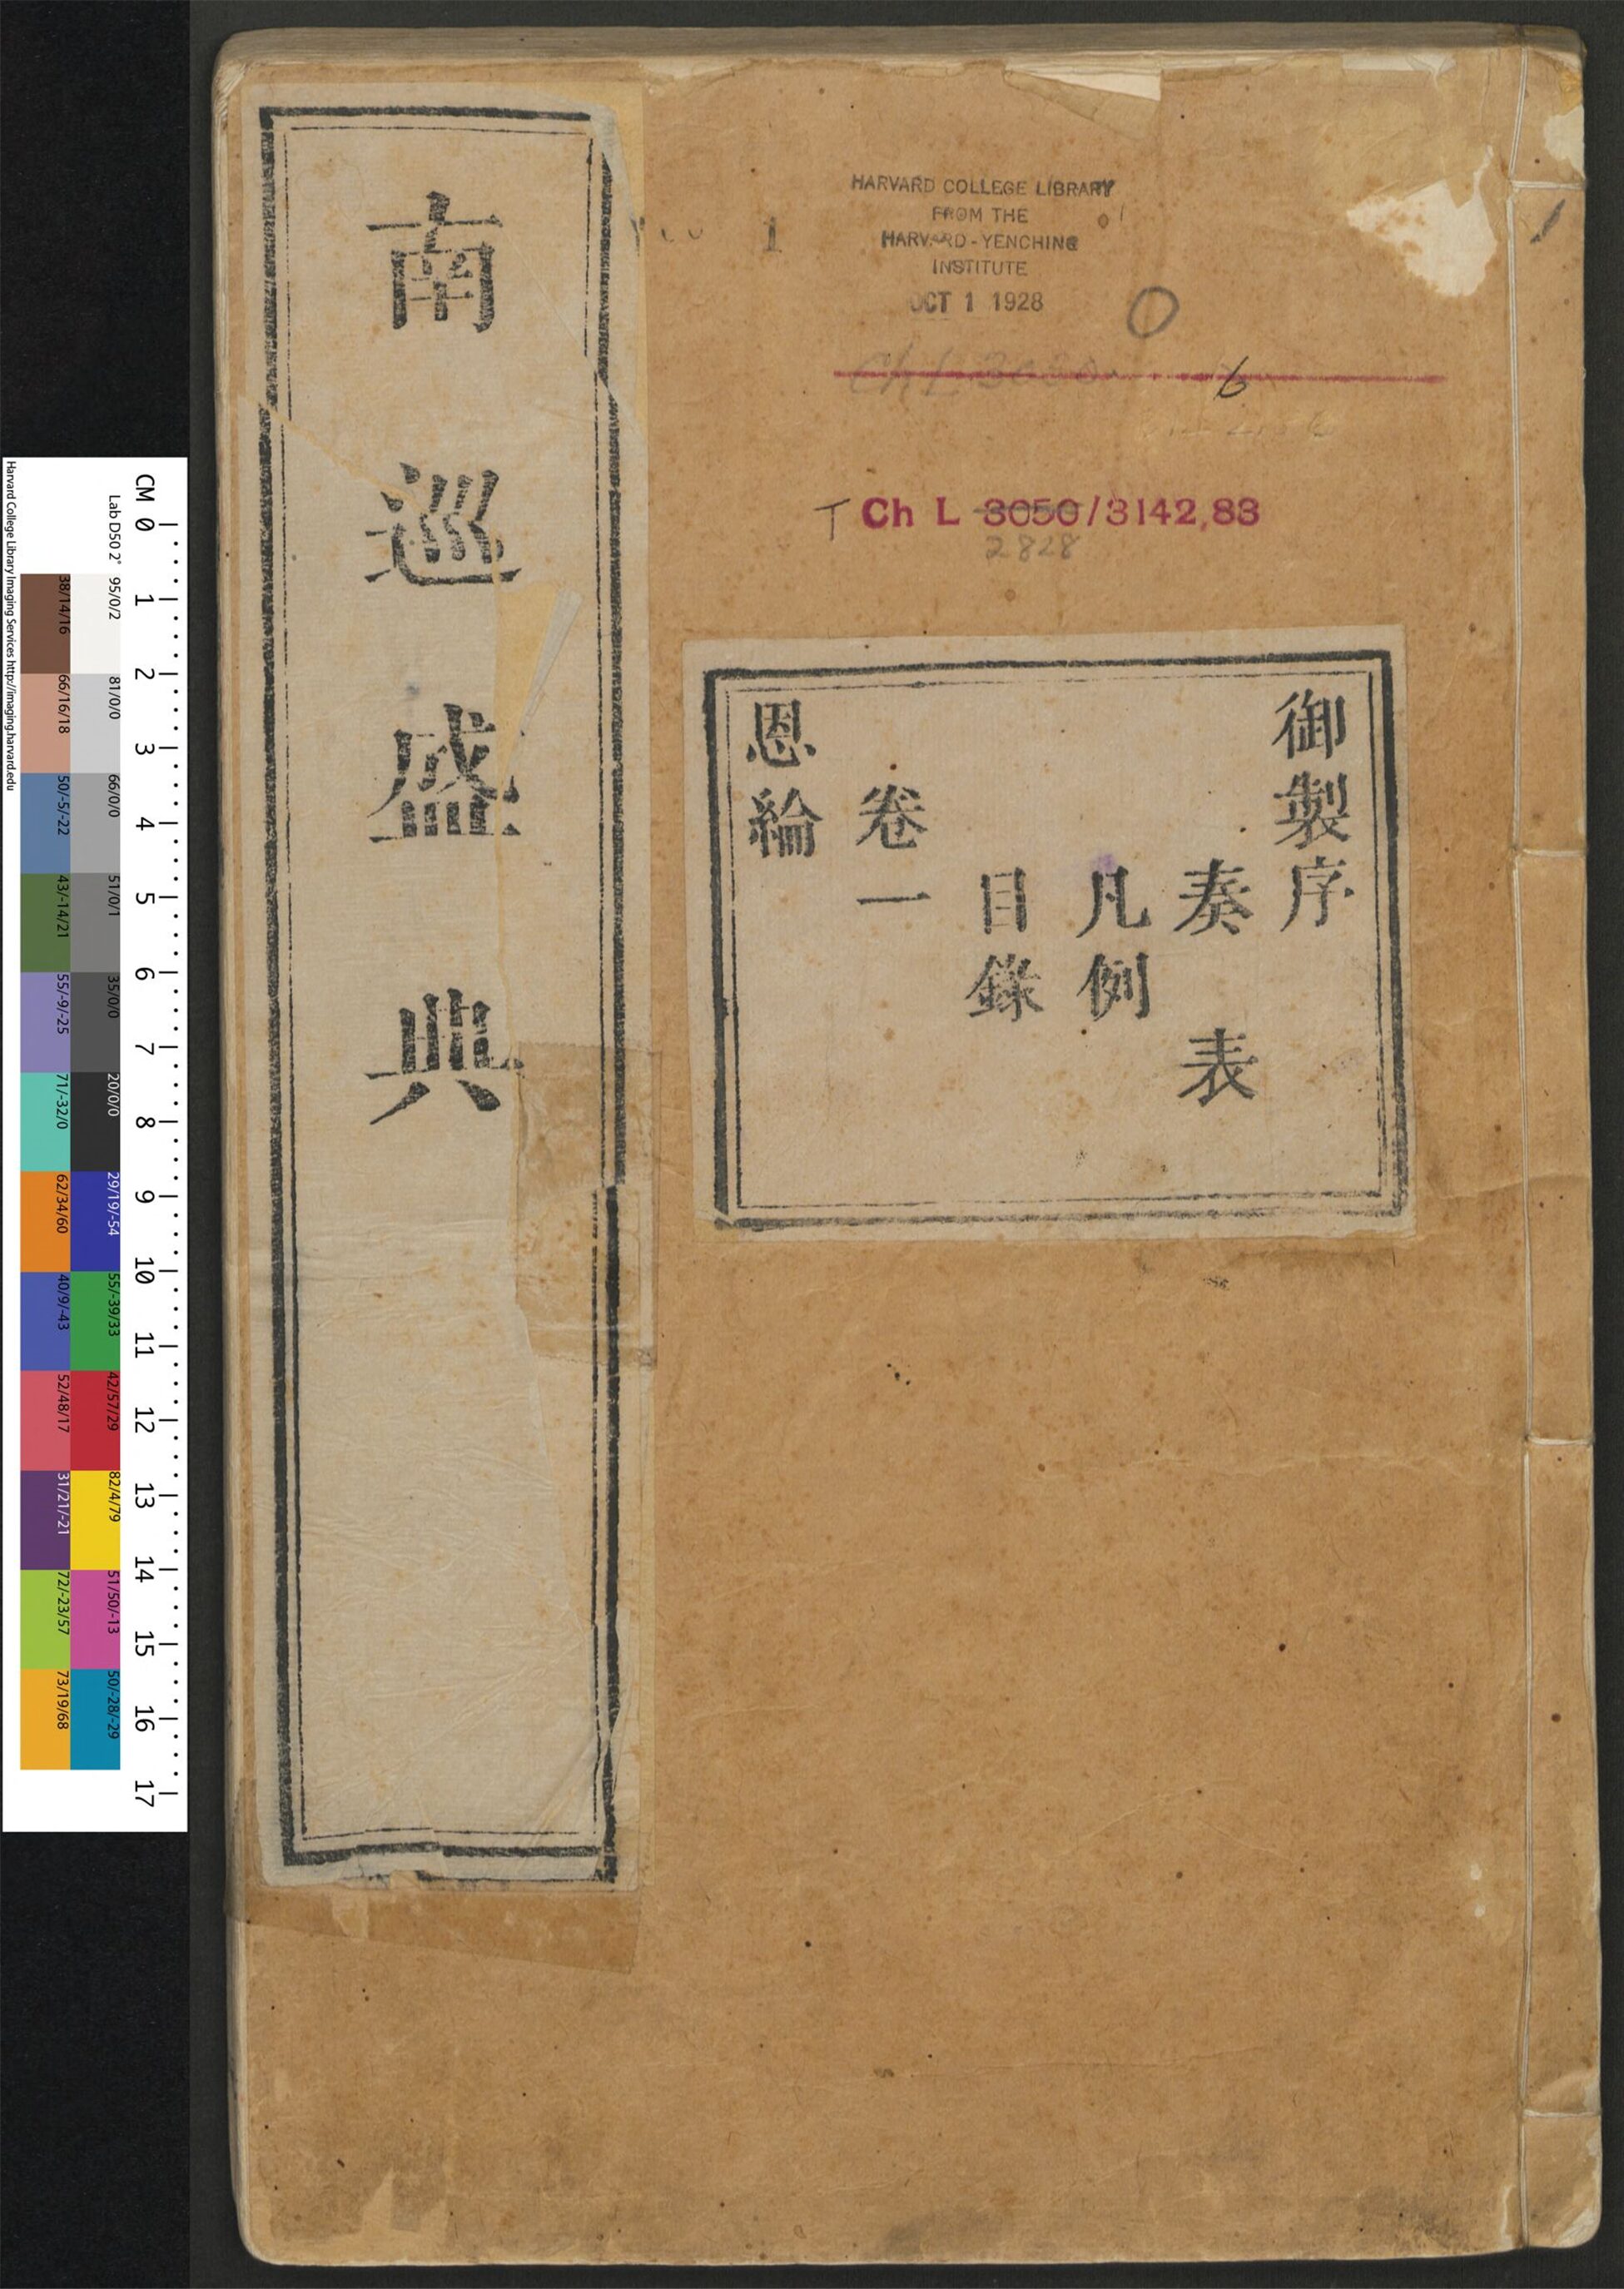 南巡盛典
HARVARD COLLEGE LIBRARY
FROM THE
HARVARD-YENCHING
INSTITUTE
OCT 1 1928
1
6
T Ch L 3050/3142,83
2828
御製序
奏表
凡例
目錄
卷一
恩綸
CM 0 1 2 3 4 5 6 7 8 9 10 11 12 13 14 15 16 17
Lab D50 2° 95/0/2 81/0/0 66/0/0 51/0/1 35/0/0 20/0/0 29/19/-54 55/-39/33 42/57/29 82/4/79 51/50/-13 50/-28/-29
38/14/16 66/16/18 50/-5/-22 43/-14/21 55/-9/-25 71/-32/0 62/34/60 40/9/-43 52/48/17 31/21/-21 72/-23/57 73/19/68
Harvard College Library Imaging Services http://imaging.harvard.edu